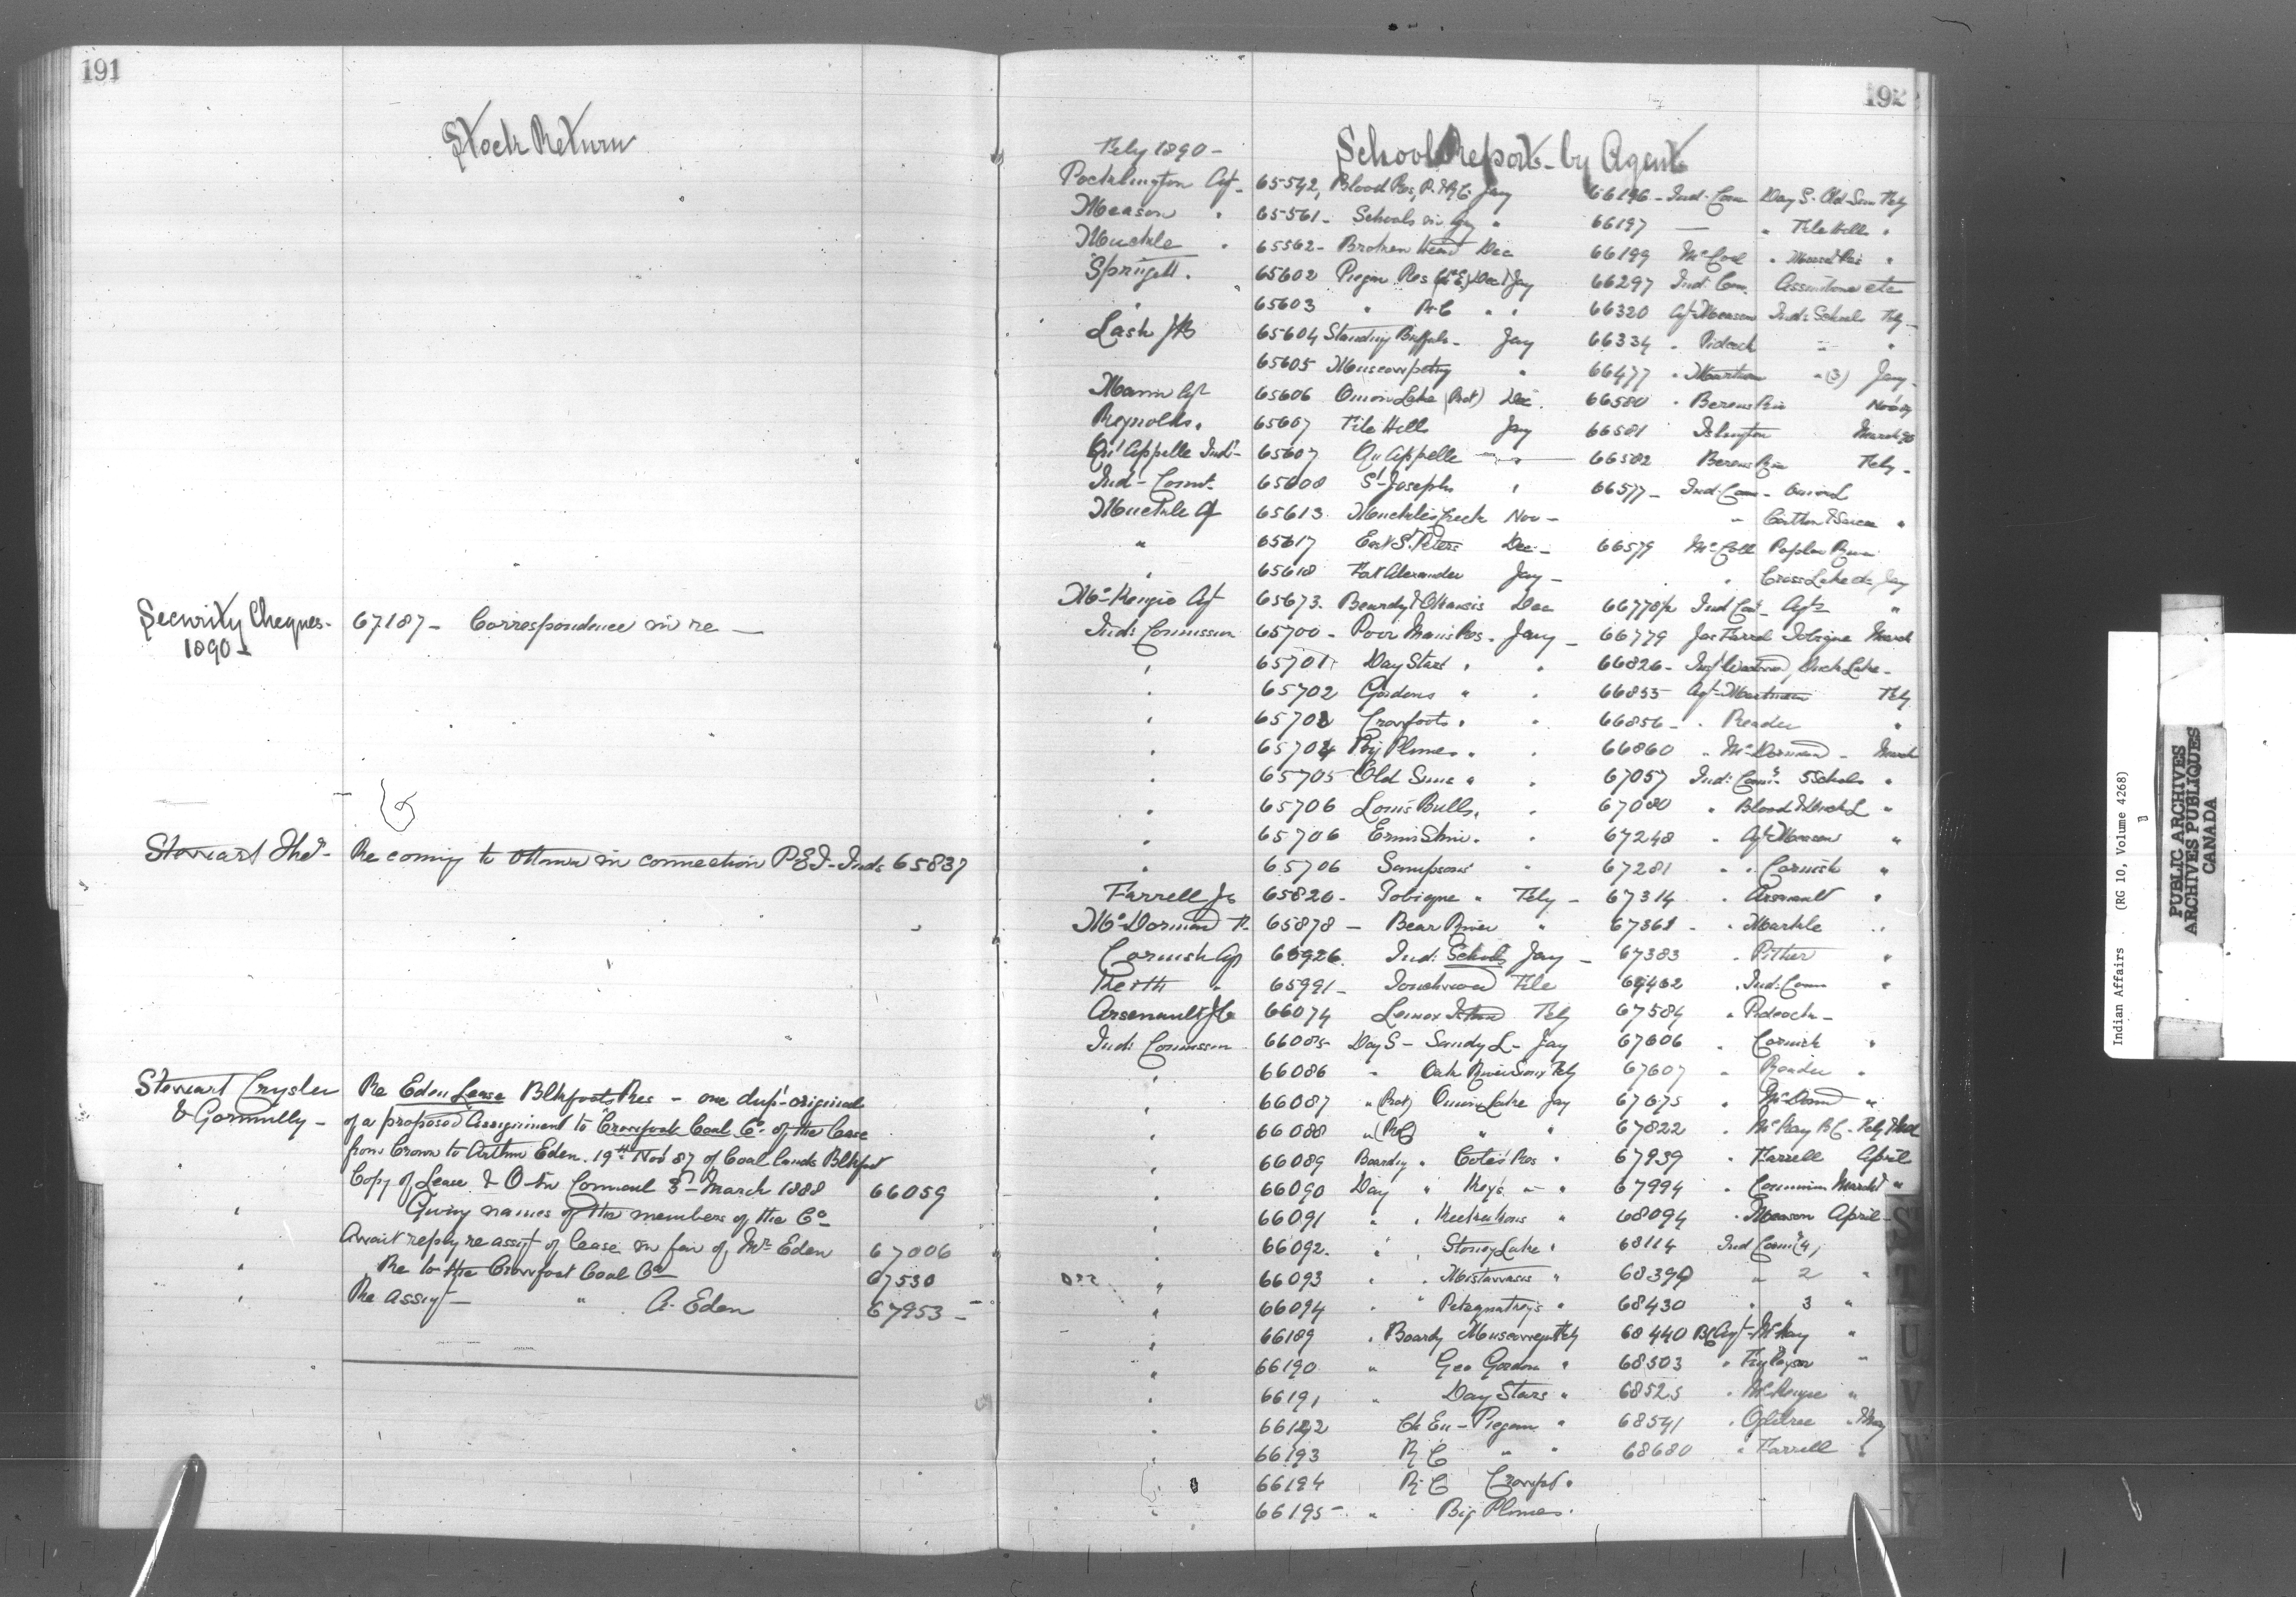 191
Stock Return
Security Cheques - 67187 - Correspondence in re -
1890 -
Stewart Theo - Re coming to Ottawa in connection P.E.I. Inds 65837
Stewart Crysler Re Eden Lease Blkfoots Res - one dup. original
& Gormully - of a proposed Assignment to Crowfoot Coal Co. of the Lease
from Crown to Arthur Eden. 19th Nov 87 of Coal lands Blkfoot
Copy of Lease & O. in Council 3 - March 1888 66059
" Giving names of the members of the Co
Await reply re assigt of lease in fav of Mr Eden 67006
" Re to the Crowfoot Coal Co 67530
" Re assigt - " A. Eden 67953 -
192
Feby 1890 - School Report - by Agents
Pocklington Agt - 65542, Blood Res, P. & R.C. Jay 66196 - Ind. Com Day S. Old Sun Feby
Measson " 65561 - Schools in Agy " 66197 — " File Hills "
Muckle " 65562 - Broken Head Dec 66199 McColl "
Springett " 65602 Piegan Res (C.E.) Dec & Jay 66297 Ind. Com. Assiniboine etc
" 65603 " R.C. " " 66320 Agt Measson Ind: Schools Feby -
Lash J.B 65604 Standing Buffalo - Jay 66334 " Pidcock " "
65605 Muscowpetung " 66477 " Martineau " (3) Jay -
Mann Agt 65606 Onion Lake (Prot) Dec. 66580 " Berens Riv Nov 89
Reynolds " 65607 File Hills Jay 66581 Islington March 90
Qu'Appelle Ind - 65607 Qu'Appelle — " — 66582 Berens Riv Feby -
Ind - Comr. 65608 St. Josephs " 66577 - Ind: Com - Onion L
Muckle Agt 65613 Muckles Creek Nov - " Carlton & Sarcee "
" 65617 East St. Peters Dec - 66579 McColl Poplar River
" 65618 Fort Alexander Jay - " Cross Lake &c Jay
McKenzie Agt 65673. Beardy & Okemasis Dec 66770 1/2 Ind Com - Agts "
Ind: Commissnr 65700 - Poor Mans Res. Jany - 66779 Jas Farrel Tobique March
" 65701 Day Stars " " 66826 - Duck Lake -
" 65702 Gordons " " 66855 Agt - Martineau Feby
" 65703 Crowfoots " " 66856 - " Reader "
" 65704 Big Plumes " " 66860 " McDormand - March
" 65705 Old Suns " " 67057 Ind: Comr. 5 Schools "
" 65706 Louis Bulls, " 67080 " Blood & Duck L "
" 65706 Ermin Skin " " 67248 " Agt Measson "
" 65706 Sampsons " 67281 " " Cornish "
Farrell Js 65820 - Tobique " Feby - 67314 " Arsenault "
McDormand F. 65878 - Bear River " 67361 - " Markle "
Cornish Agt 65926 Ind: Schools Jay - 67383 " Pither "
Keith " 65991 - Touchwood File 67462 " Ind: Com "
Arsenault J.O 66074 Lennox Island Feby 67584 " Pidcock -
Ind: Commissnr 66085 Day S - Sandy L - Jay 67606 " Cornish "
" 66086 " Oak River Sioux Feby 67607 " Reader "
" 66087 " (Prot) Onion Lake Jay 67675 "
" 66088 " (R.C) " " 67822 " McKay B.C. - Feby & Mch
" 66089 Boardg " Cotes Res " 67939 " Farrell April
" 66090 Day " Key's " " 67994 " March "
" 66091 " " Keeseekoons " 68094 " Measson April -
" 66092. " " Stoney Lake " 68114 Ind Comr (4)
" 66093 " " Mistawasis " 68390 " 2 "
" 66094 " " Petequakey's " 68430 " 3 "
" 66189 " Boardg Muscowequn Feby 68440 BC Agt - McKay "
" 66190 " Geo Gordon " 68503 "
" 66191 " Day Stars " 68525 " McKenzie "
" 66192 Ch En - Piegan " 68541 " Ogilvee " May
" 66193 R C " " 68680 " Farrell "
66194 R.C Crowft "
66195 - " Big Plumes.
S
T
U
V
W
Y
Indian Affairs (RG 10, Volume 4268)
PUBLIC ARCHIVES
ARCHIVES PUBLIQUES
CANADA